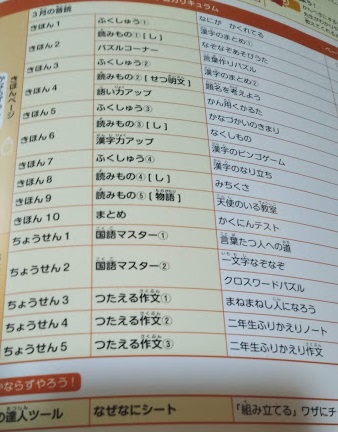 カリキュラム
3月の音読
きほん1 ふくしゅう① なにが かくれてる
読みもの①[し] 漢字のまとめ①
きほん2 パズルコーナー なぞなぞあそびうた
きほん3 ふくしゅう② 言葉作りパズル
きほん4 読みもの②[せつ明文] 漢字のまとめ②
語い力アップ 題名を考えよう
きほん5 ふくしゅう③ かん用くかるた
きほん6 読みもの③[し] かなづかいのきまり
漢字力アップ なくしもの
きほん7 ふくしゅう④ 漢字のビンゴゲーム
きほん8 読みもの④[し] 漢字のなり立ち
きほん9 読みもの⑤[物語] みちくさ
きほん10 まとめ 天使のいる教室
かくにんテスト
ちょうせん1 国語マスター① 言葉たつ人への道
ちょうせん2 国語マスター② 一文字なぞなぞ
クロスワードパズル
ちょうせん3 つたえる作文① まねまねし人になろう
ちょうせん4 つたえる作文② 二年生ふりかえりノート
ちょうせん5 つたえる作文③ 二年生ふりかえり作文
きほんページ
かならずやろう!
の達人ツール なぜなにシート 「組み立てる」ワザにチ